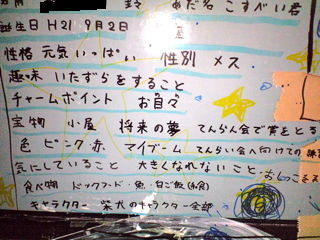 名前 まる あだ名 こすべい君
誕生日 H21 9月2日
性格 元気いっぱい 性別 メス
趣味 いたずらをすること
チャームポイント お目々
宝物 小屋 将来の夢 てんらん会で賞をとる
色 ピンク・赤 マイブーム てんらい会へ向けての
気にしていること 大きくなれないこと・おしっこをス
食べ物 ドックフード・魚・白ご飯(和食)
キャラクター 柴犬のキャラクター全部